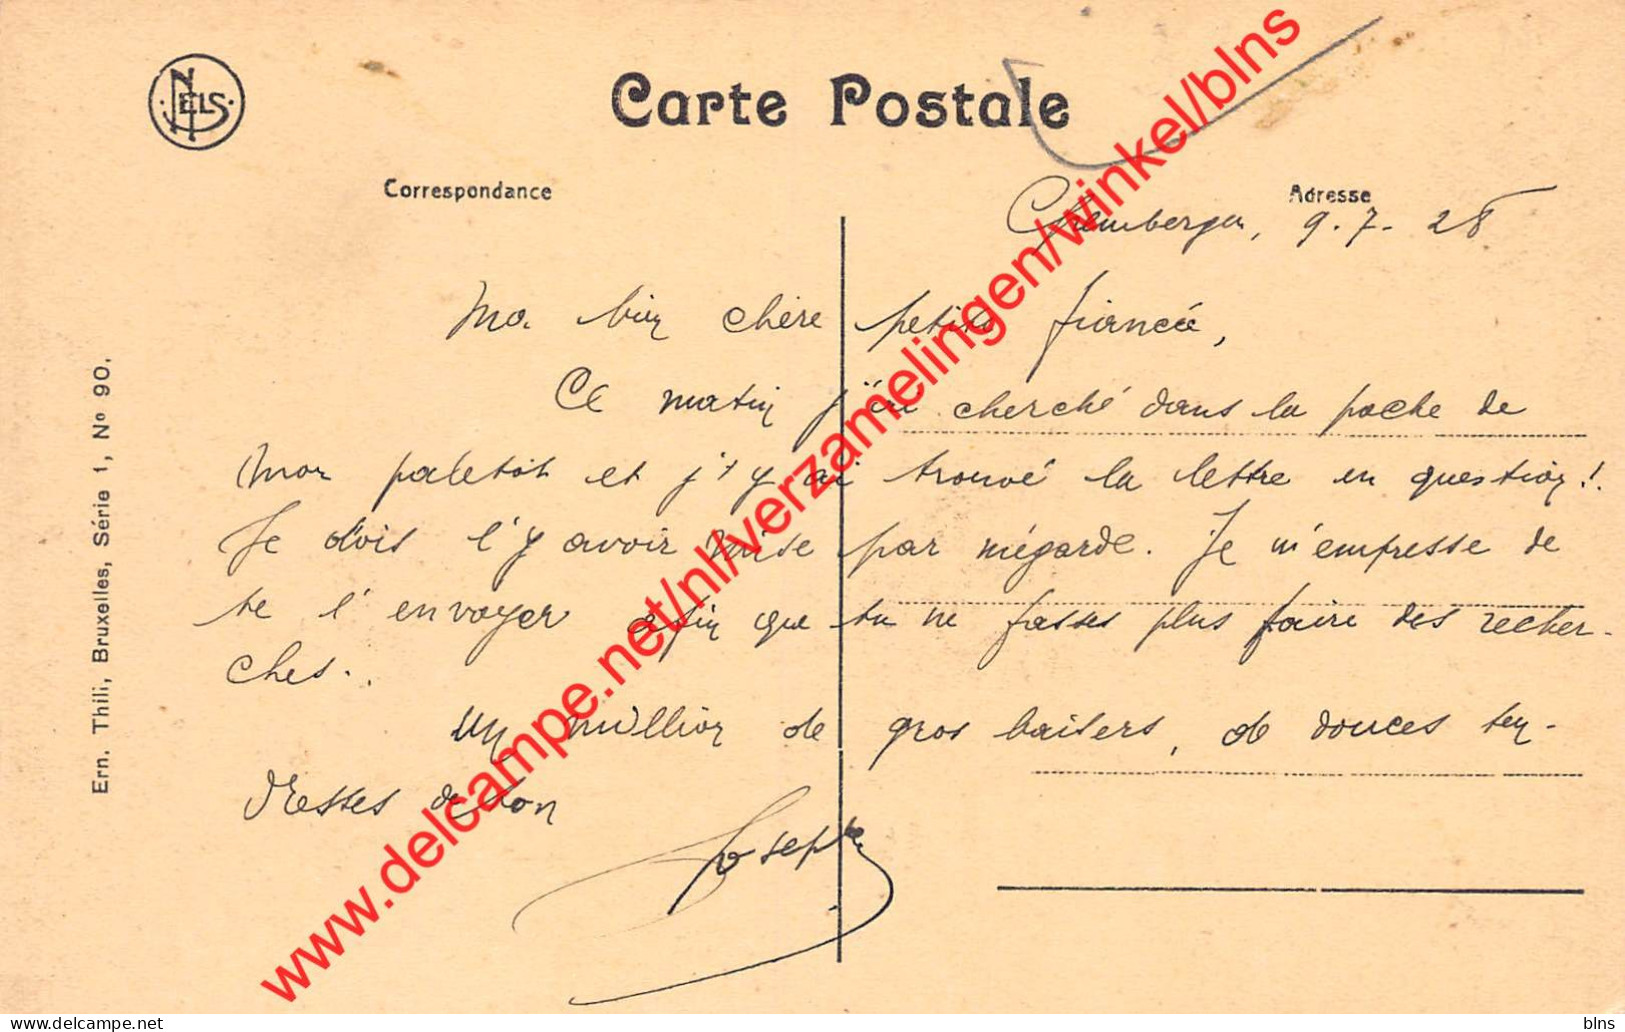 NELS
Carte Postale
Correspondance
Adresse
Grembergen, 9.7.28
Ma bien chère petite fiancée,
Ce matin j'ai cherché dans la poche de
mon paletôt et j'y ai trouvé la lettre en question!.
Je dois l'y avoir mise par mégarde. Je m'empresse de
te l'envoyer afin que tu ne fasses plus faire des recher-
ches..
Un million de gros baisers, de douces ten-
dresses de ton
Joseph
Ern. Thill, Bruxelles, Série 1, Nº 90.
www.delcampe.net/nl/verzamelingen/winkel/blns
www.delcampe.net
blns